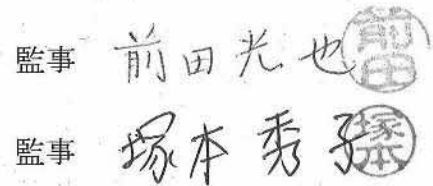 監事 前田光也 前田
監事 塚本秀子 塚本